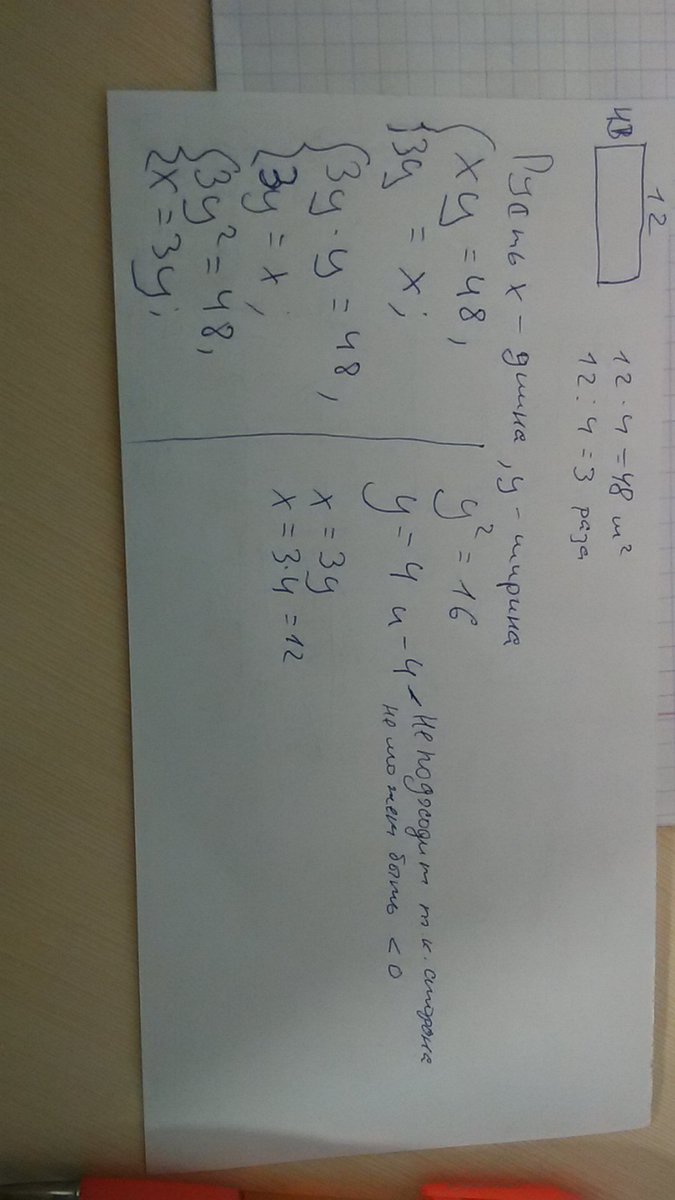 12
4
12 · 4 = 48 м²
12 : 4 = 3 раза
Пусть х – длина, у – ширина
{ xy = 48,
{ 3y = x;
{ 3y · y = 48,
{ 3y = x;
{ 3y² = 48,
{ x = 3y;
y² = 16
y = 4 и – 4 – Не подходит т.к. сторона
не может быть < 0
x = 3y
x = 3·4 = 12